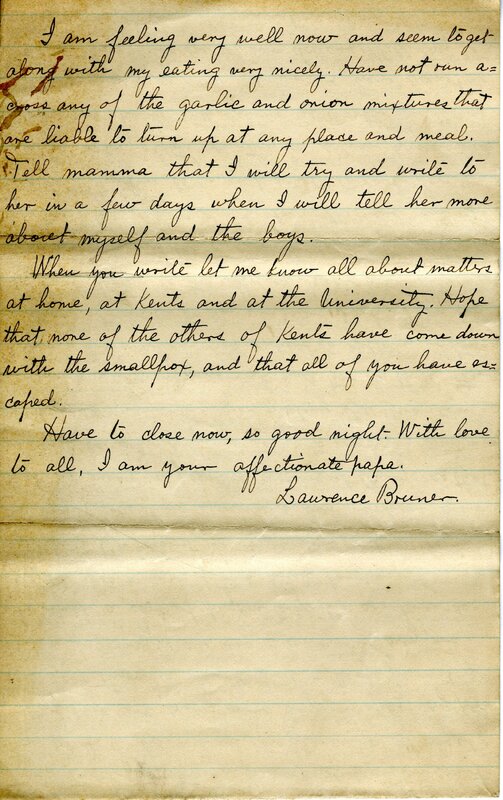 I am feeling very well now and seem to get
along with my eating very nicely. Have not run a=
cross any of the garlic and onion mixtures that
are liable to turn up at any place and meal.
Tell mamma that I will try and write to
her in a few days when I will tell her more
about myself and the boys.
When you write let me know all about matters
at home, at Kents and at the University. Hope
that none of the others of Kents have come down
with the smallpox, and that all of you have es=
caped.
Have to close now, so good night. With love
to all, I am your affectionate papa.
Lawrence Bruner.